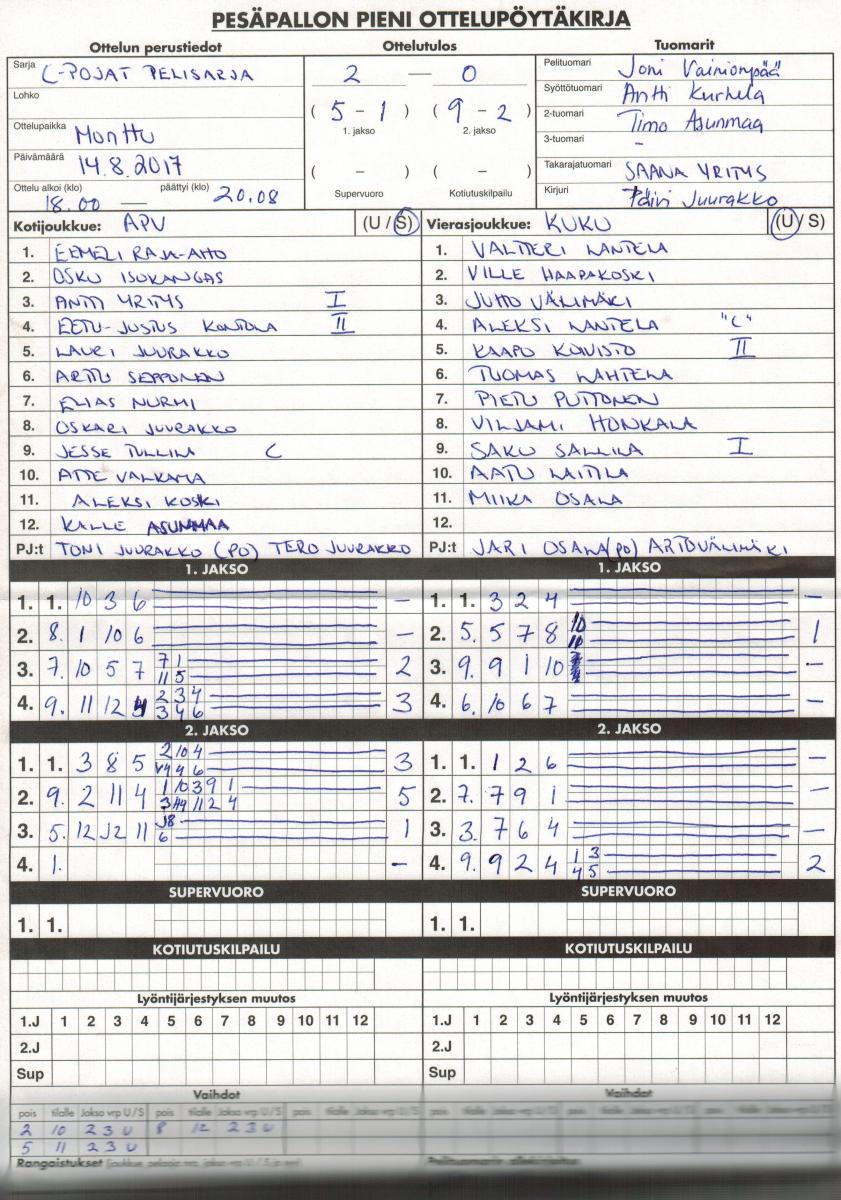 PESÄPALLON PIENI OTTELUPÖYTÄKIRJA
Ottelun perustiedot
Sarja C-POJAT PELISARJA
Lohko
Ottelupaikka Monttu
Päivämäärä 14.8.2017
Ottelu alkoi (klo) 18.00 — päättyi (klo) 20.08
Ottelutulos
2 — 0
(5 - 1) (9 - 2)
1. jakso 2. jakso
( - ) ( - )
Supervuoro Kotiutuskilpailu
Tuomarit
Pelituomari Joni Vainionpää
Syöttötuomari Antti Kurhela
2-tuomari Timo Asunmaa
3-tuomari -
Takarajatuomari SAANA YRITYS
Kirjuri Päivi Juurakko
Kotijoukkue: APV (U / S)
1. EEMELI RAJA-AHO
2. OSKU ISOKANGAS
3. ANTTI YRITYS I
4. EETU-JUSTUS KONTOLA II
5. LAURI JUURAKKO
6. ARTTU SEPPONEN
7. ELIAS NURMI
8. OSKARI JUURAKKO
9. JESSE TULLILA C
10. ATTE VALKAMA
11. ALEKSI KOSKI
12. KALLE ASUNMAA
PJ:t TONI JUURAKKO (PO) TERO JUURAKKO
Vierasjoukkue: KUKU (U / S)
1. VALTTERI LANTELA
2. VILLE HAAPAKOSKI
3. JUHO VÄLIMÄKI
4. ALEKSI LANTELA "C"
5. KAAPO KOIVISTO II
6. TUOMAS LAHTELA
7. PIETU PUTTONEN
8. VILJAMI HONKALA
9. SAKU SALLILA I
10. AATU LAITILA
11. MIIKA OSALA
12.
PJ:t JARI OSALA (PO) ARTO VÄLIMÄKI
1. JAKSO
1. 1. 10 3 6 —
2. 8. 1 10 6 —
3. 7. 10 5 7 7 1 2
11 5
4. 9. 11 12 4 2 3 4 3
3 4 6
1. JAKSO
1. 1. 3 2 4 —
2. 5. 5 7 8 10 1
3. 9. 9 1 10 —
4. 6. 10 6 7 —
2. JAKSO
1. 1. 3 8 5 2 10 4 3
4 6
2. 9. 2 11 4 1 10 3 9 1 5
11 2 4
3. 5. 12 J2 11 J8 1
6
4. 1. —
2. JAKSO
1. 1. 1 2 6 —
2. 7. 7 9 1 —
3. 3. 7 6 4 —
4. 9. 9 2 4 1 3 2
4 5
SUPERVUORO
1. 1.
SUPERVUORO
1. 1.
KOTIUTUSKILPAILU
KOTIUTUSKILPAILU
Lyöntijärjestyksen muutos
1.J 1 2 3 4 5 6 7 8 9 10 11 12
2.J
Sup
Lyöntijärjestyksen muutos
1.J 1 2 3 4 5 6 7 8 9 10 11 12
2.J
Sup
Vaihdot
pois tilalle Jakso vrp U / S pois tilalle Jakso vrp U / S
2 10 2 3 U 8 12 2 3 U
5 11 2 3 U
Rangaistukset
Vaihdot